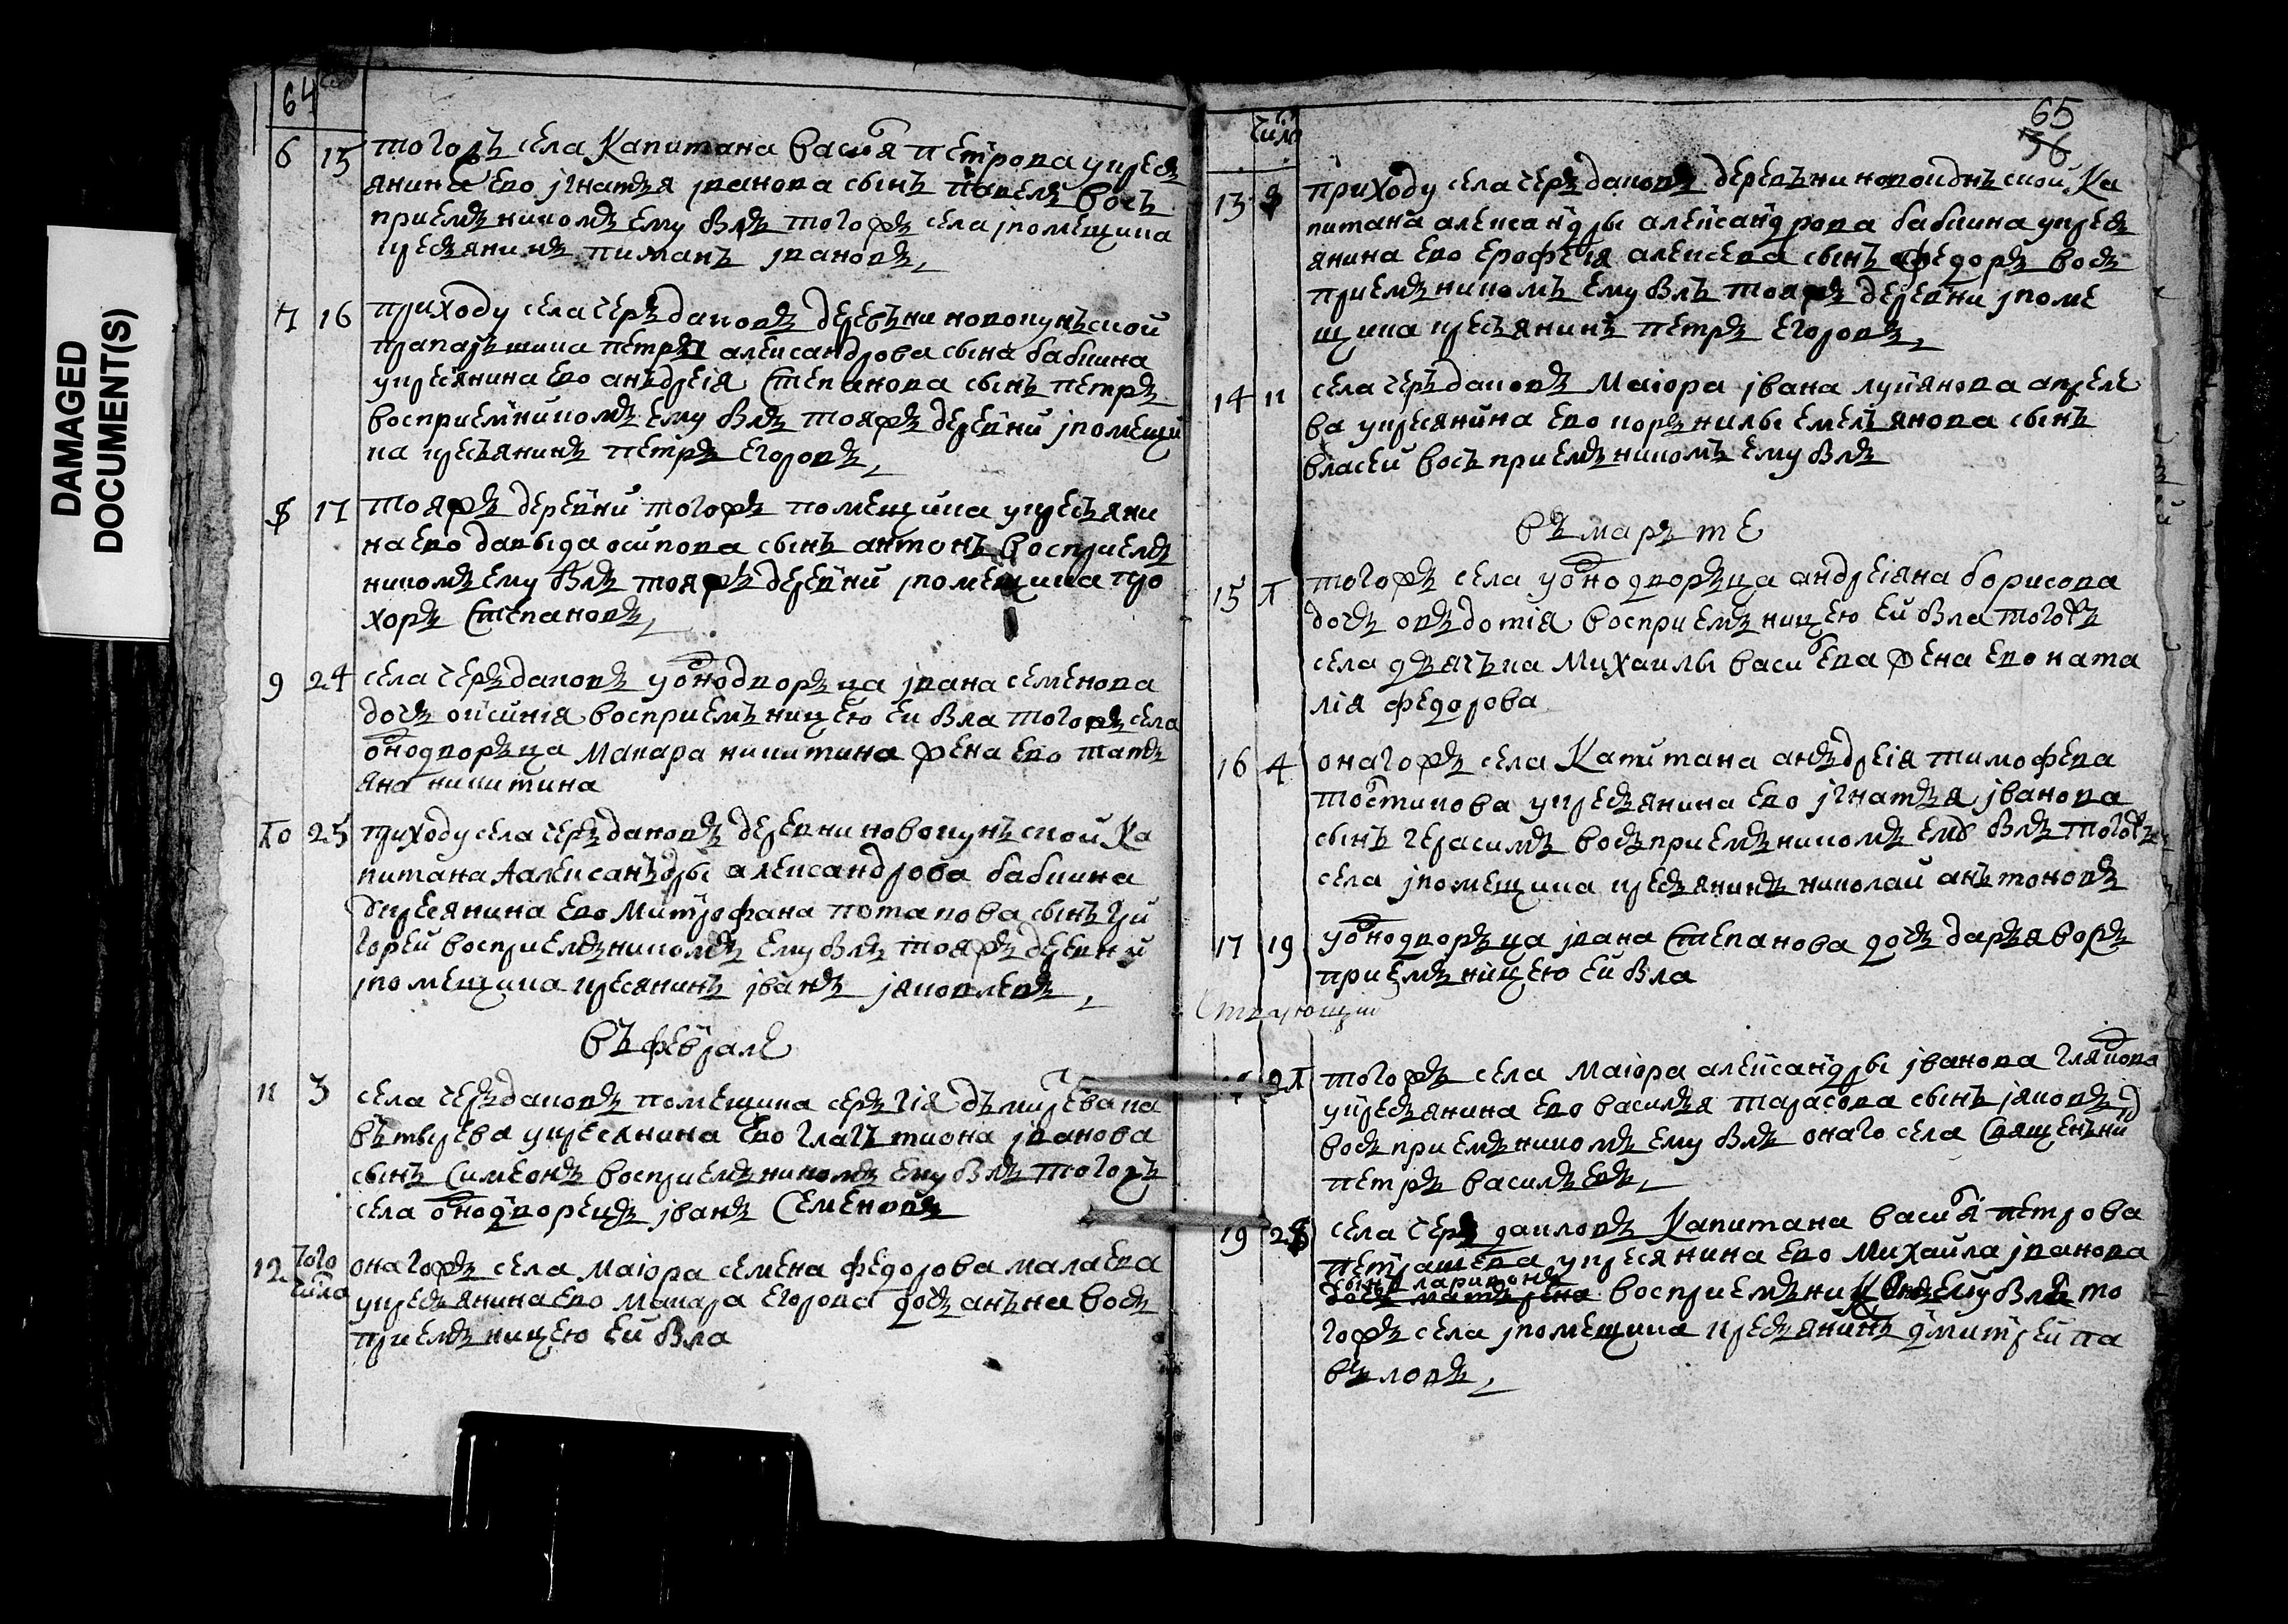 64
6 15 тогожъ села Капитана васиₗья петрова укресь
янина ево игнатья иванова сынъ павелъ вось
приемъникомъ ему былъ тогожъ села ипомещика
кресьянинъ пиманъ ивановъ
7 16 приходу села черъдаковъ деревъни новокунъской
прапаръшика петра александрова сына бабкина
укресянина ево анъдрѣя Степанова сынъ петръ
восприемникомъ ему былъ тояжъ деревни ипомещи
ка кресъянинъ петръ егоровъ
8 17 тояжъ деревни тогожъ помещика укресъяни
на ево давыда осипова сынъ антонъ восприемъ
никомъ ему былъ тояжъ деревни ипомещика про
хоръ Степановъ
9 24 села черъдаковъ уоднодворъца ивана семенова
дочь оксиния восприемъницею ей была тогожъ села
однодворъца Макара никитина жена ево тать
яна никитина
10 25 приходу села черъдаковъ деревни новокунъской Ка
питана Александры александрова бабкина
укресянина ево Митрофана потапова сынъ гри
горей восприемъникомъ ему былъ тояжъ деревни
ипомещика кресянинъ иванъ ияковлевъ
Въ феврале
11 3 села черъдаковъ помещика серъгия
укресянина ево иванова
сынъ Симеонъ восприемъникомъ ему былъ тогожъ
села однодворецъ иванъ Семеновъ
12 того числа онагожъ села маиора семена федорова малаева
укресьянина ево макара егорова дочь анъна вось
приемъницею ей была
числ
65
56
13 8 приходу села черъдаковъ деревъни новокунъской Ка
питана александры александрова бабкина укресь
янина ево ерофея алексева сынъ федоръ вось
приемъникомъ ему былъ тояжъ деревни ипоме
щика кресъянинъ петръ егоровъ
14 11 села черъдаковъ Маиора ивана лукянова апреле
ва укресянина ево корънилы емелъянова сынъ
власей восъприемъникомъ ему былъ
Въ маръте
15 1 тогожъ села уоднодворъца андреяна борисова
дочь овъдотия восприемъницею ей была тогожъ
села дъячъка Михаилы васильева жена ево ната
лия федорова
16 4 онагожъ села Капитана анъдрея тимофева
укресьянина ево игнатья иванова
сынъ герасимъ восьприемъникомъ ему былъ тогожъ
села ипомещика кресьянинъ николай анътоновъ
17 19 уоднодворъца ивана Степанова дочь даръя восъ
приемъницею ей была
21 тогожъ села маиора александры иванова
укресьянина ево василья тарасова сынъ ияковъ
восьприемъникомъ ему былъ онаго села Священъни
петръ васильевъ
19 28 села черъдаковъ Капитана васиₗья петрова
укресянина ево Михаила иванова
сынъ ларионъ
дочь матърена восприемъникомъ ему былъ то
гожъ села ипомещика кресьянинъ дмитрей па
въловъ
DAMAGED
DOCUMENT(S)